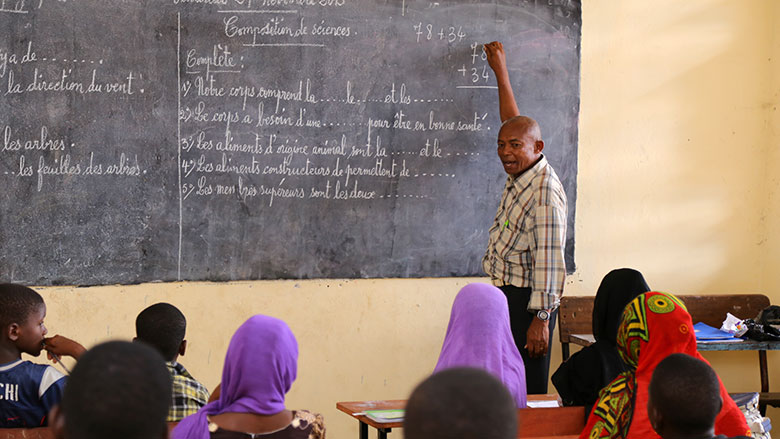 Composition de sciences.
78 + 34
78
+ 34
ya de ........
Complète :
la direction du vent.
1°/ Notre corps comprend la ...... le ...... et les .........
2°/ Le corps a besoin d'une ......... pour être en bonne santé.
les arbres.
3°/ Les aliments d'origine animal, sont la ..... et le ......
...les feuilles des arbres.
4°/ Les aliments constructeurs de permettent de ......
5°/ Les membres supérieurs sont les deux .........
CHI